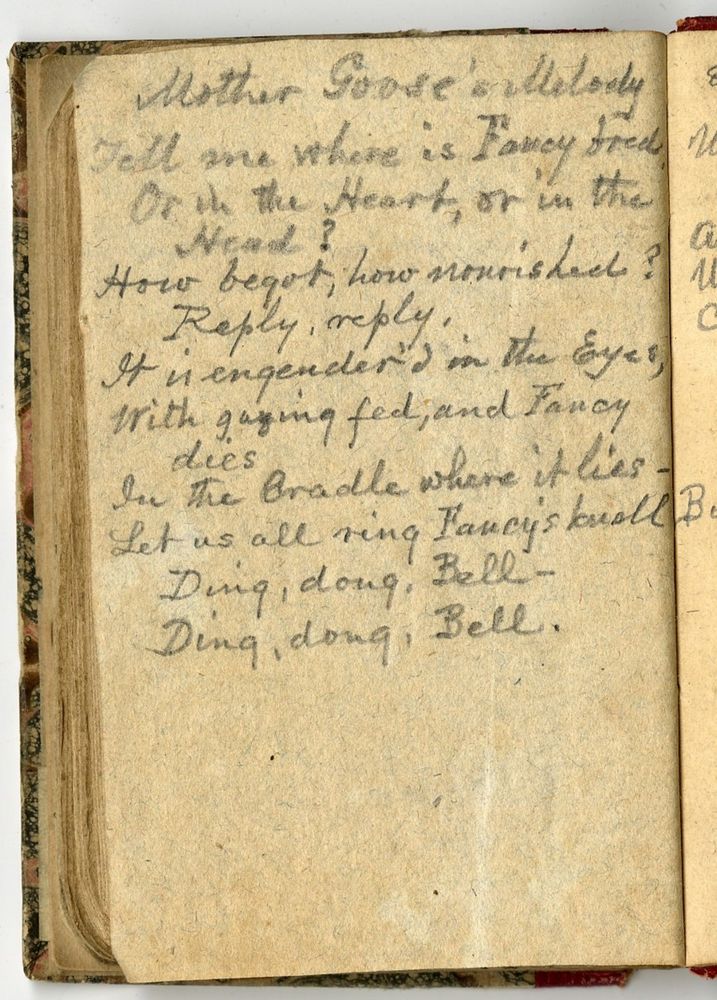 Mother Goose's Melody
Tell me where is Fancy bred,
Or in the Heart, or in the
Head?
How begot, how nourished?
Reply, reply.
It is engender'd in the Eyes,
With gazing fed, and Fancy
dies
In the Cradle where it lies -
Let us all ring Fancy's knell
Ding, dong, Bell -
Ding, dong, Bell.